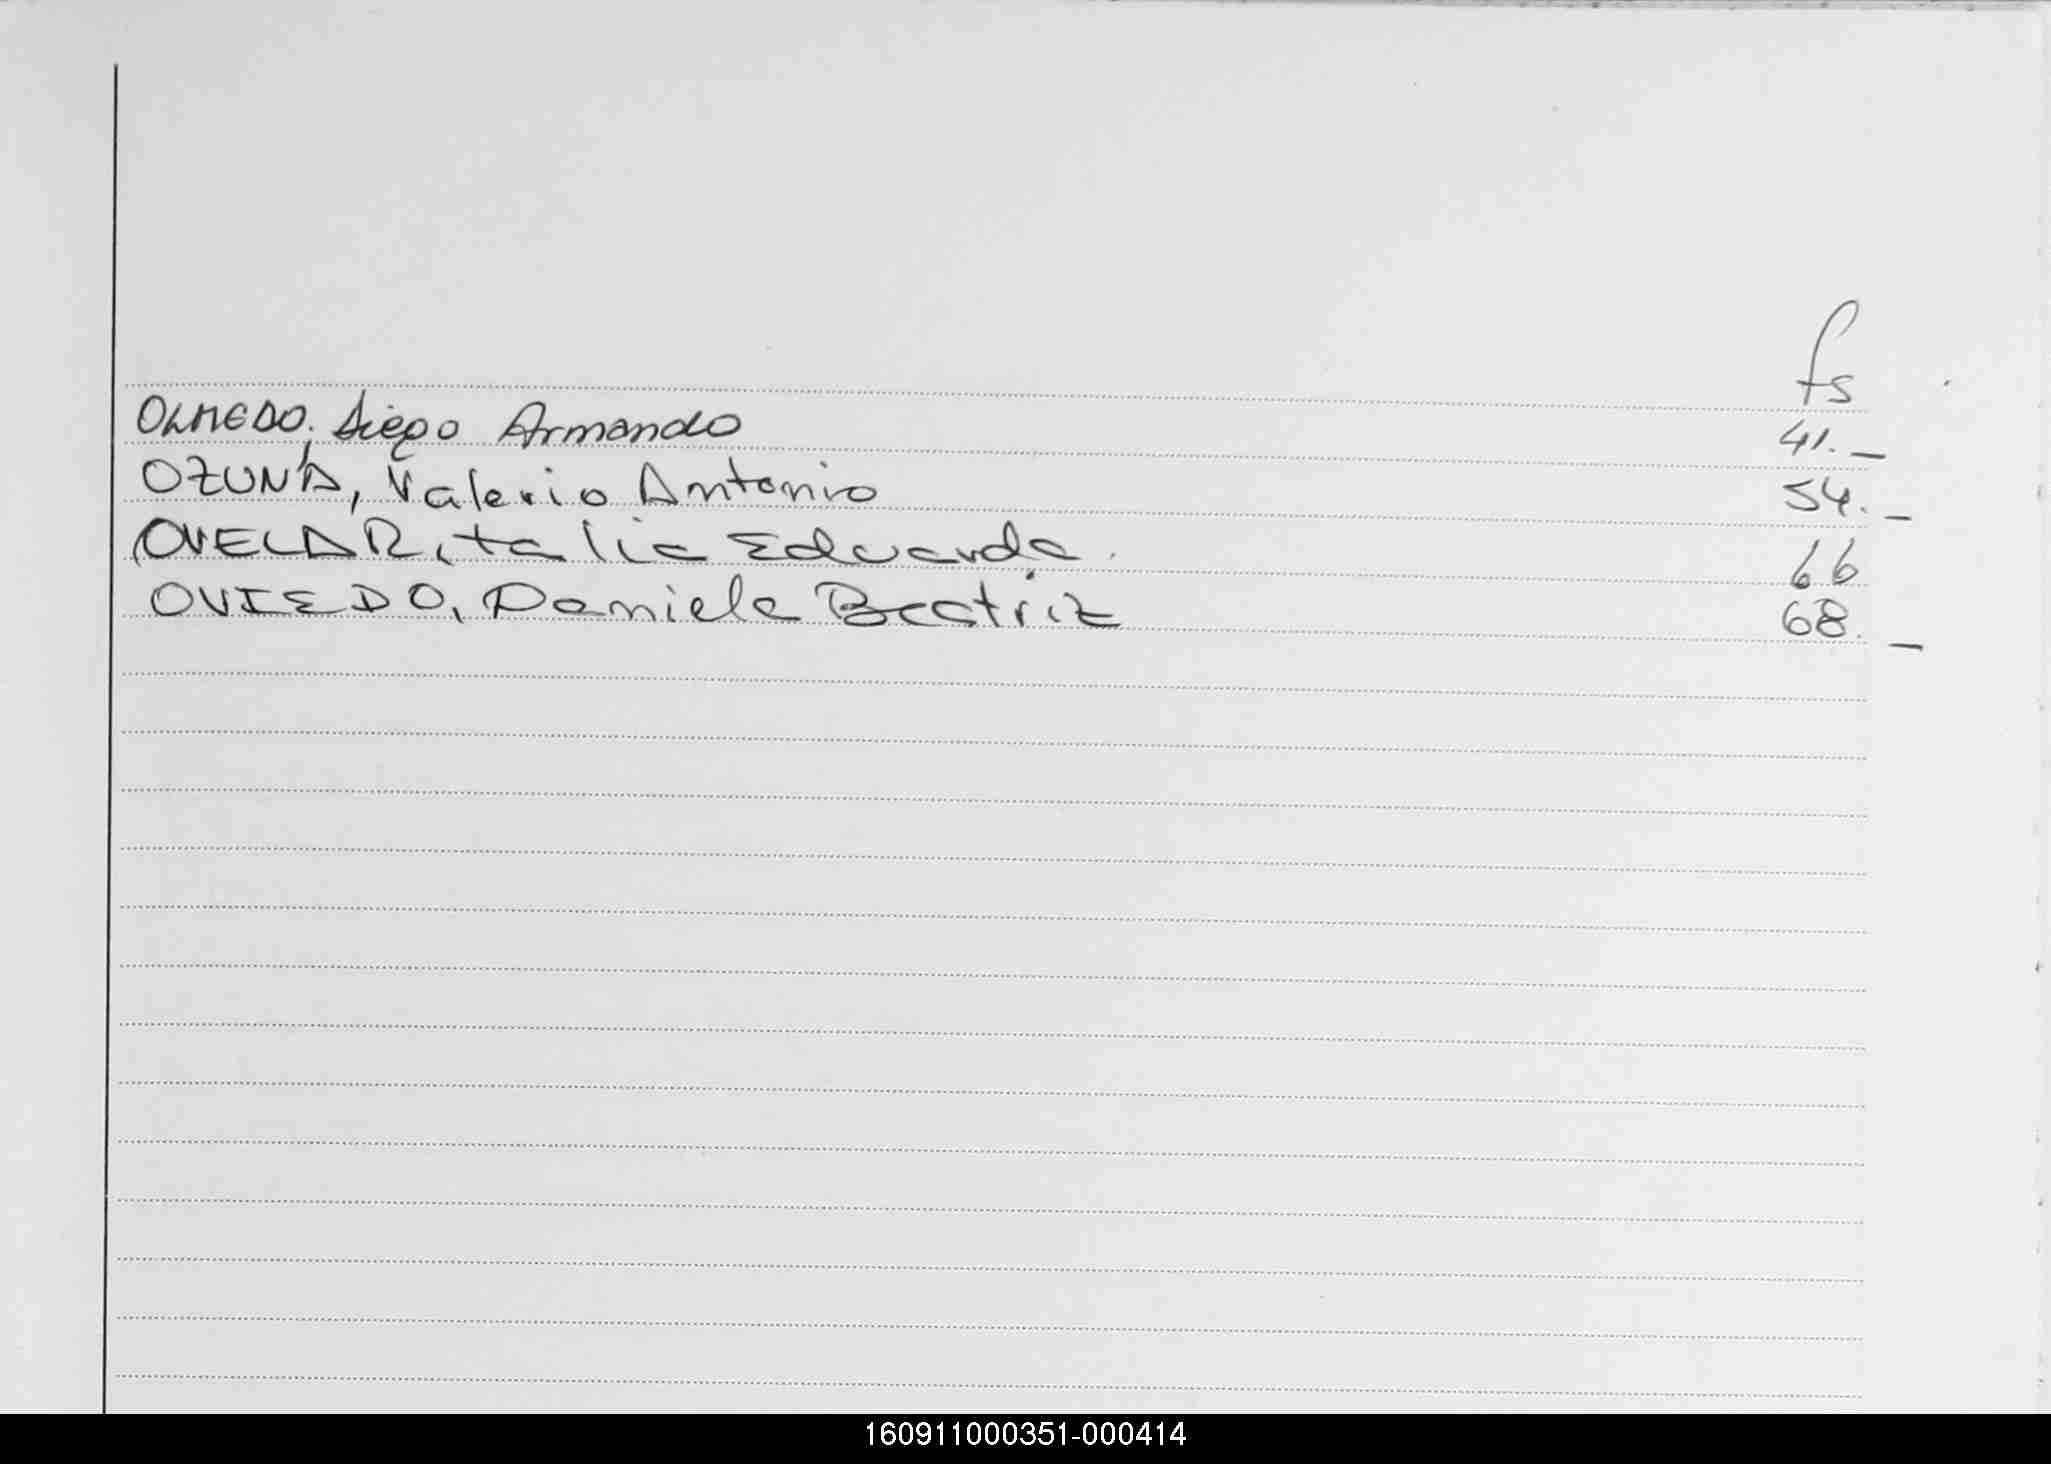 fs
OLMEDO. Diego Armando 41._
OZUNA, Valerio Antonio 54._
OVELAR, Italia Eduarda. 66
OVIEDO, Daniela Beatriz 68._
160911000351-000414